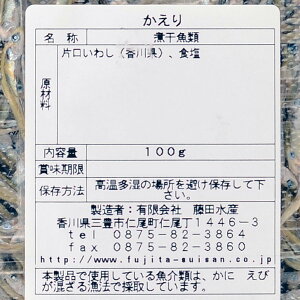 かえり
名称 煮干魚類
原材料 片口いわし（香川県）、食塩
内容量 100g
賞味期限
保存方法 高温多湿の場所を避け保存して下さい。
製造者：有限会社 藤田水産
香川県三豊市仁尾町仁尾丁1446-3
tel 0875-82-3864
fax 0875-82-3860
http://www.fujita-suisan.co.jp
本製品で使用している魚介類は、かに えび
が混ざる漁法で採取しています。